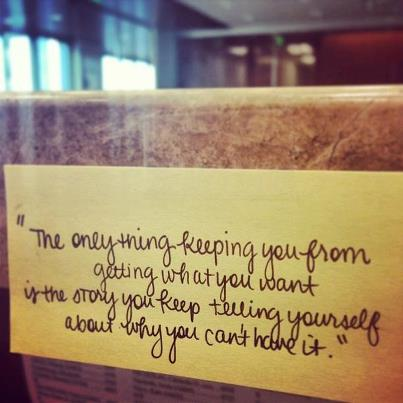 "The only thing keeping you from
getting what you want
is the story you keep telling yourself
about why you can't have it."